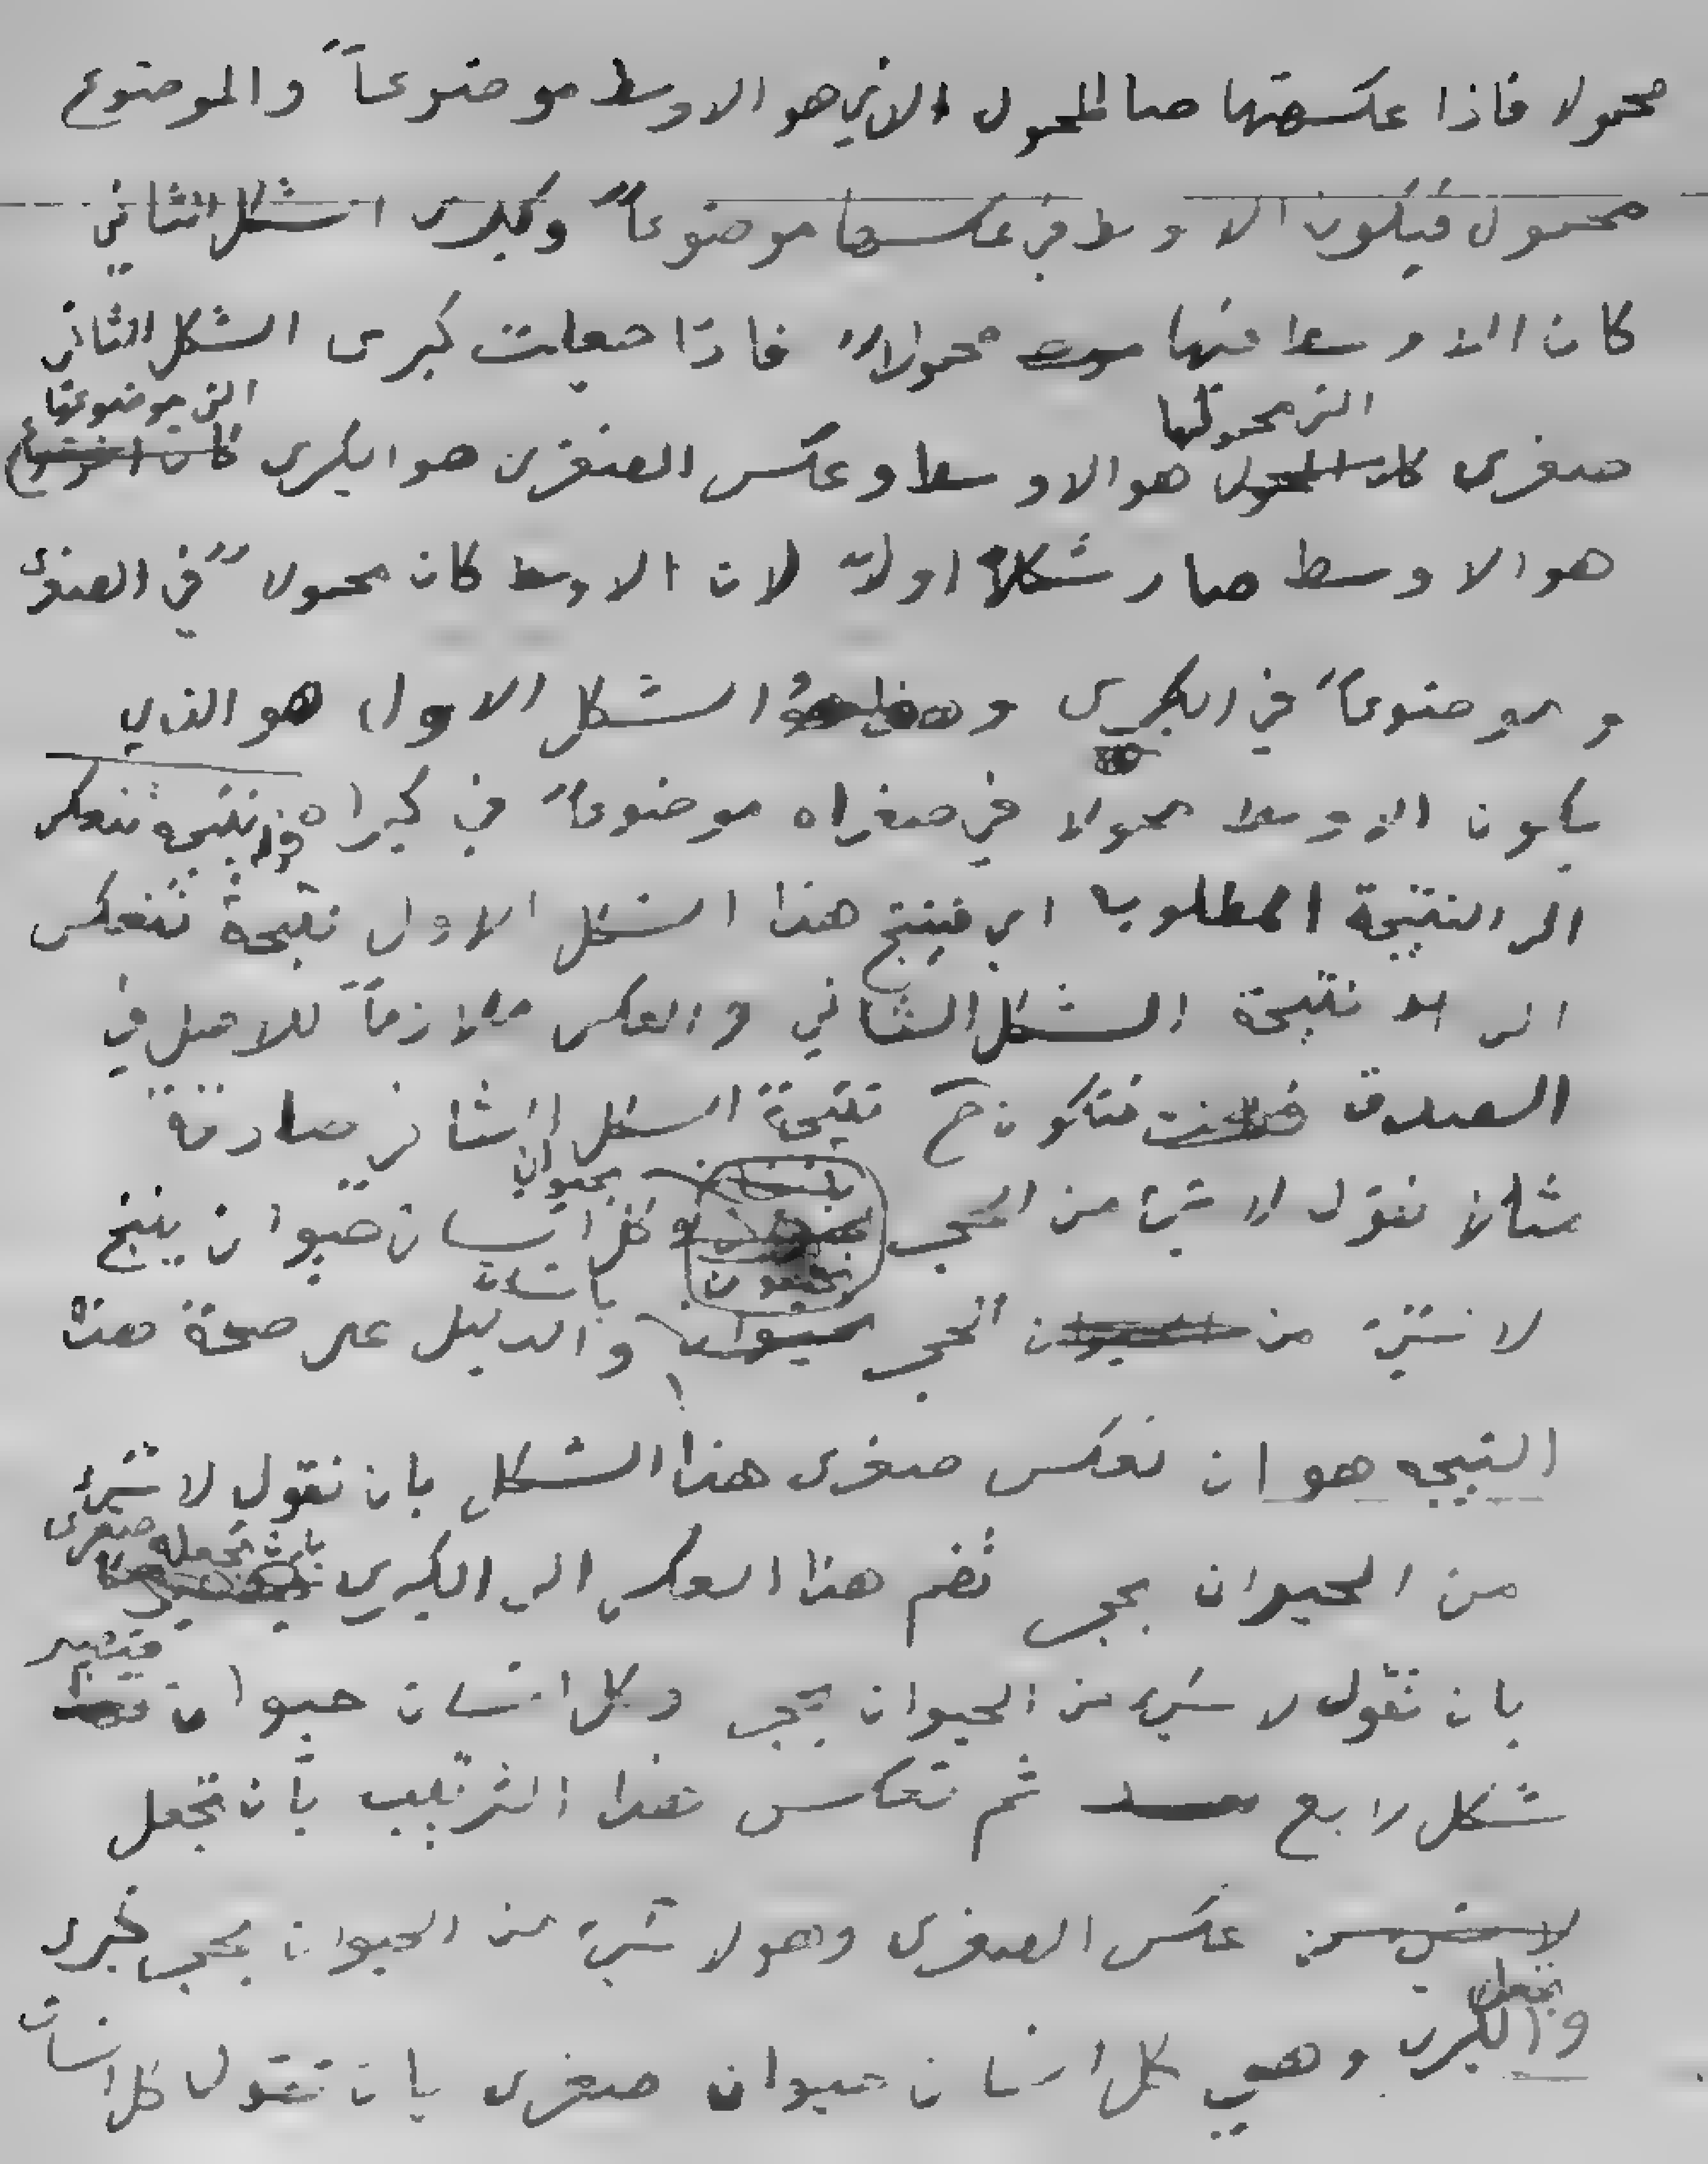 محمولا فاذا عكستها صا المحمول الذي هو الاوسط موضوعاً والموضوع
محمول فيكون الاوسط في عكسها موضوعاً وكبرى الشكل الثاني
كان الاوسط منها محمولاً فاذا جعلت كبرى الشكل الثاني
التي محمولها التي موضوعها
صغرى هو الاوسط وعكس الصغرى هو الكبرى
هو الاوسط صار شكلاً اولاً لان الاوسط كان محمولاً في الصغرى
و موضوعاً في الكبرى و الشكل الاول هو الذي
يكون الاوسط محمولا في صغراه موضوعاً في كبراه نتيجة تنعكس
الى النتيجة المطلوبة اي فينتج هذا الشكل الاول نتيجة تنعكس
الى نتيجة الشكل الثاني والعكس ملازماً للاصل في
الصدق فتكون ح نتيجة الشكل الثاني صادقة
بحيوان
مثلا نقول لا شيء من الحجر وكل انسان حيوان ينتج
بانسان
لا شيء من الحجر والدليل على صحة هذا
النتيجه هو ان نعكس صغرى هذا الشكل بان نقول لا شيء
بان نجعله صغرى
من الحيوان بحجر نضم هذا العكس الى الكبرى
فيصير
بان نقول لا شيء من الحيوان بحجر وكل انسان حيوان
شكل رابع ثم نعكس هذا الترتيب بأن نجعل
عكس الصغرى وهو لا شيء من الحيوان بحجر كبرى
نجعل
والكبرى وهي كل انسان حيوان صغرى بان نقول كل انسان